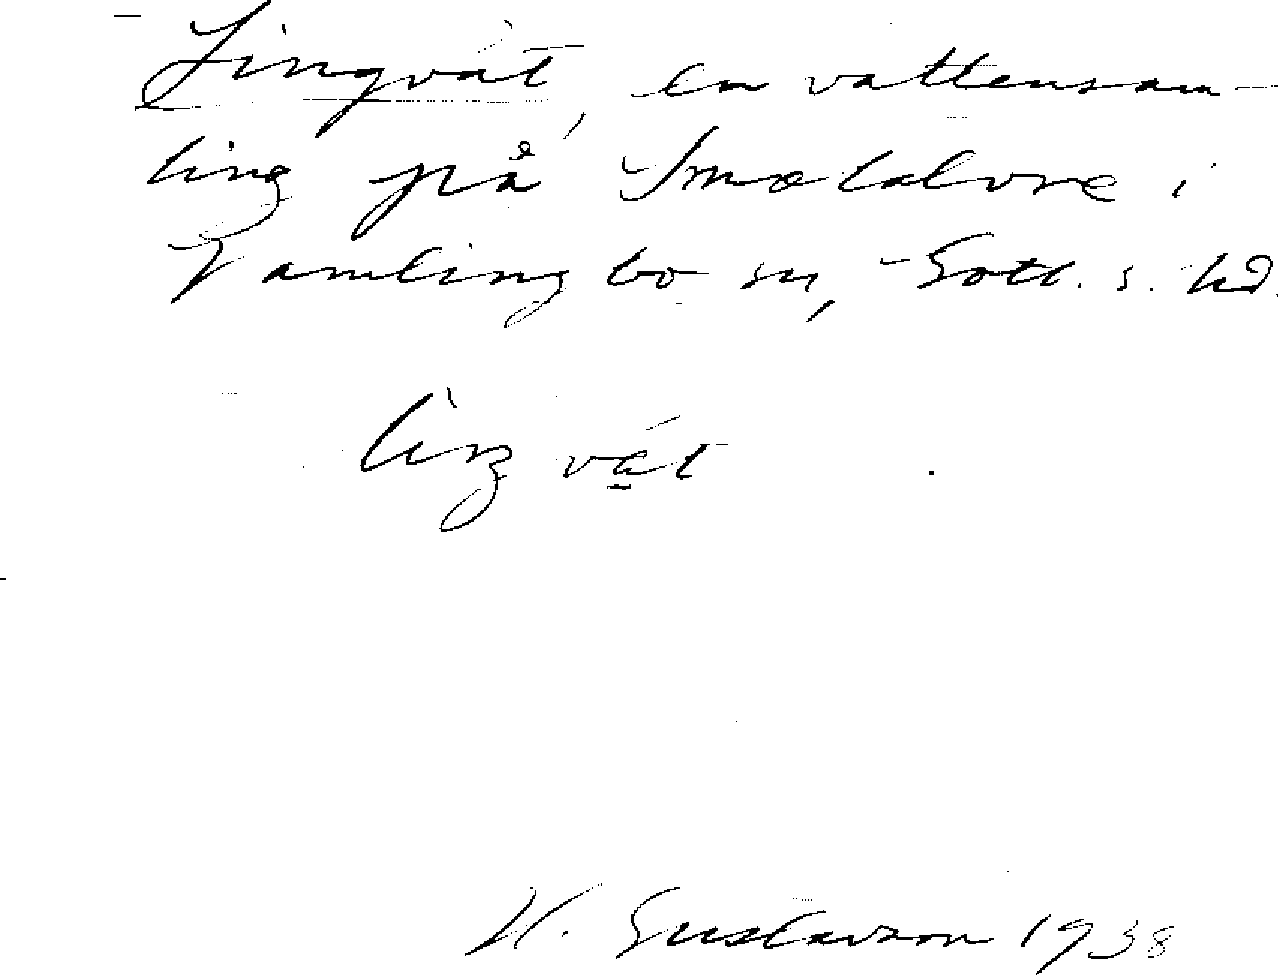 Lingvät, en vattensam-
ling på Smälalvre i
Vamlingbo sn, Gotl. s. hd.
lìŋ vát
H. Gustavson 1938